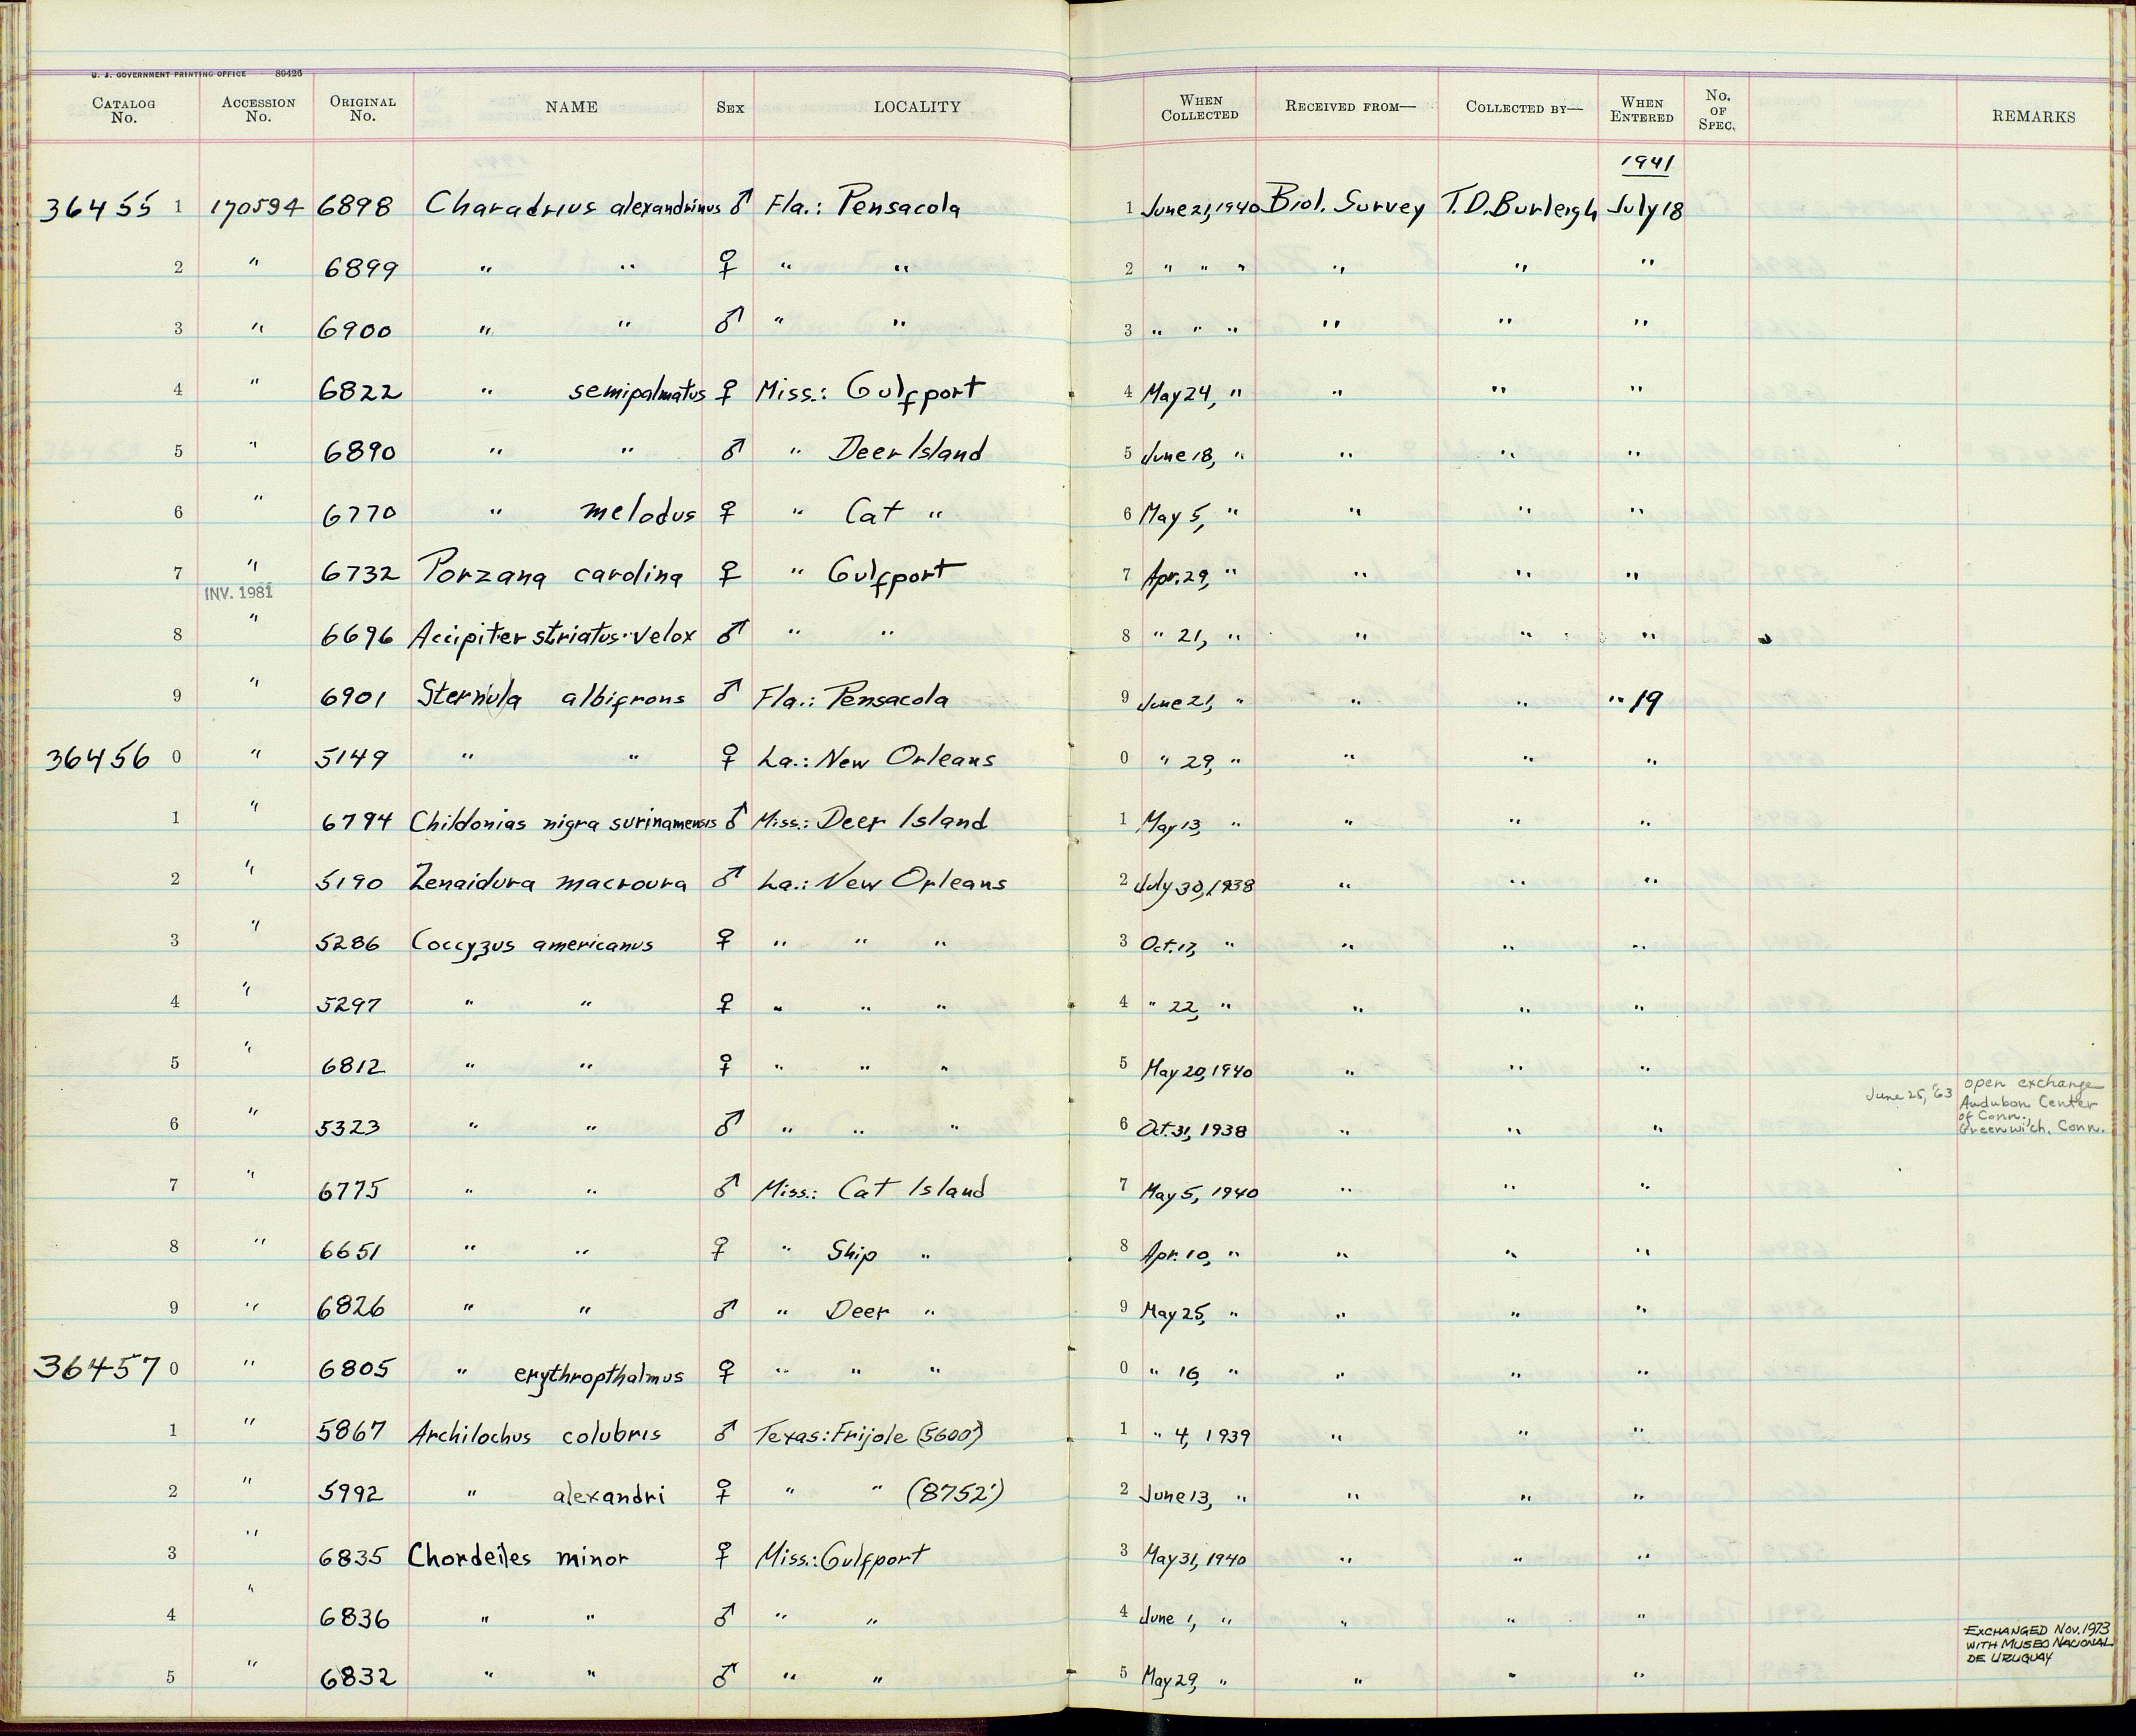 U. S. GOVERNMENT PRINTING OFFICE 89426
CATALOG No. ACCESSION No. ORIGINAL No. NAME SEX LOCALITY WHEN COLLECTED RECEIVED FROM— COLLECTED BY— WHEN ENTERED No. OF SPEC. REMARKS
1941
36455 1 170594 6898 Charadrius alexandrinus ♂ Fla.: Pensacola 1 June 21, 1940 Biol. Survey T.D. Burleigh July 18
2 " 6899 " " ♀ " " 2 " " " " " "
3 " 6900 " " ♂ " " 3 " " " " " "
4 " 6822 " semipalmatus ♀ Miss.: Gulfport 4 May 24, " " " "
5 " 6890 " " ♂ " Deer Island 5 June 18, " " " "
6 " 6770 " melodus ♀ " Cat " 6 May 5, " " " "
7 " 6732 Porzana carolina ♀ " Gulfport 7 Apr. 29, " " " "
INV. 1981
8 " 6696 Accipiter striatus velox ♂ " " 8 " 21, " " " "
9 " 6901 Sternula albifrons ♂ Fla.: Pensacola 9 June 21, " " " " 19
36456 0 " 5149 " " ♀ La.: New Orleans 0 " 29, " " " "
1 " 6794 Childonias nigra surinamensis ♂ Miss.: Deer Island 1 May 13, " " " "
2 " 5190 Zenaidura macroura ♂ La.: New Orleans 2 July 30, 1938 " " "
3 " 5286 Coccyzus americanus ♀ " " " 3 Oct. 17, " " " "
4 " 5297 " " ♀ " " " 4 " 22, " " " "
5 " 6812 " " ♀ " " " 5 May 20, 1940 " " "
6 " 5323 " " ♂ " " " 6 Oct. 31, 1938 " " " June 25, '63 open exchange
Audubon Center
of Conn.,
Greenwich, Conn.
7 " 6775 " " ♂ Miss.: Cat Island 7 May 5, 1940 " " "
8 " 6651 " " ♀ " Ship " 8 Apr. 10, " " " "
9 " 6826 " " ♂ " Deer " 9 May 25, " " " "
36457 0 " 6805 " erythropthalmus ♀ " " " 0 " 16, " " " "
1 " 5867 Archilochus colubris ♂ Texas: Frijole (5600') 1 " 4, 1939 " " "
2 " 5992 " alexandri ♀ " " (8752') 2 June 13, " " " "
3 " 6835 Chordeiles minor ♀ Miss.: Gulfport 3 May 31, 1940 " " "
4 " 6836 " " ♂ " " 4 June 1, " " " "
EXCHANGED NOV. 1973
WITH MUSEO NACIONAL
DE URUGUAY
5 " 6832 " " ♂ " " 5 May 29, " " " "